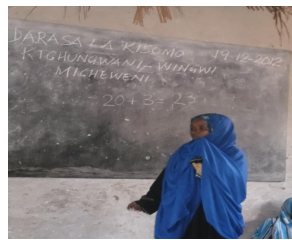 DARASA LA KISOMO 19-12-2012
KIGHUNGWANI - WINGWI
MICHEWENI
- 20 + 3 = 23